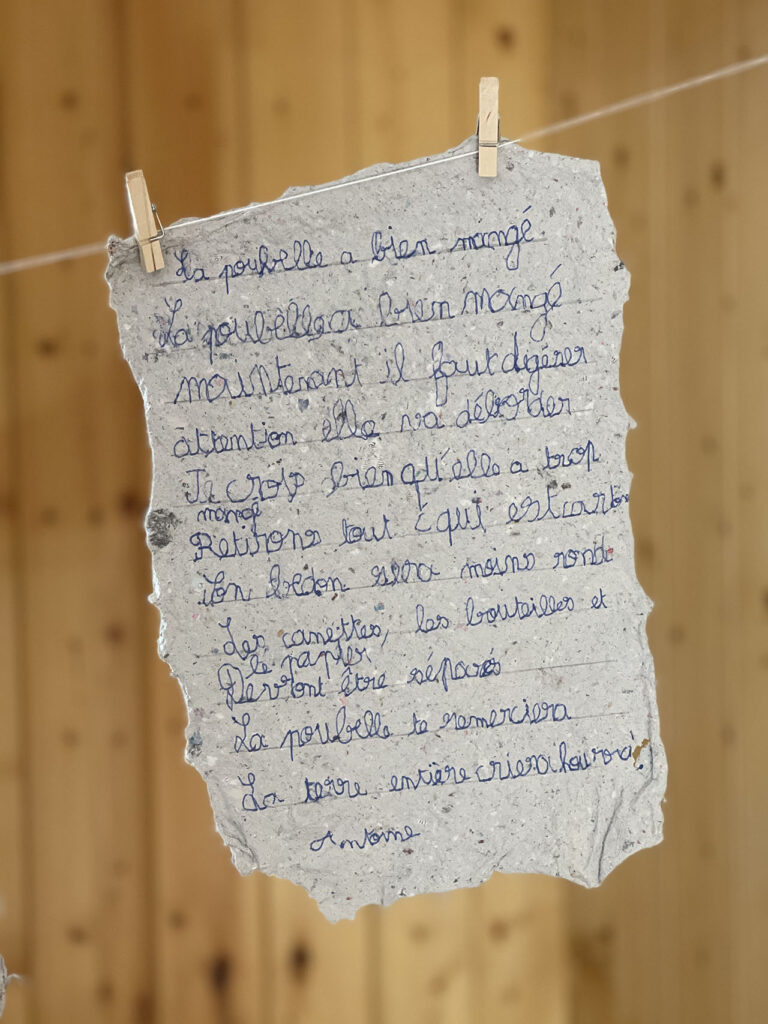 La poubelle a bien mangé.
La poubelle a bien mangé
maintenant il faut digérer
attention elle va déborder
Je crois bien qu'elle a trop
mangé
Retirons tout ç qui est carton
Son bedon sera moins rond
Les canettes, les bouteilles et
le papier
Devront être séparés
La poubelle te remerciera
La terre entière criera hourora!
Antoine